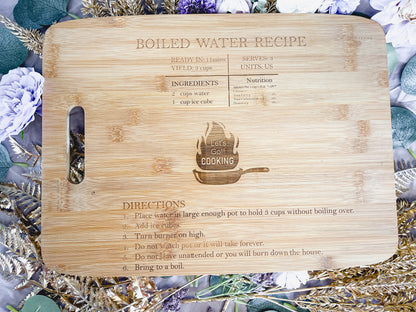 BOILED WATER RECIPE
READY IN: 1 hours
SERVES: 3
YIELD: 3 cups
UNITS: US
INGREDIENTS
2 cups water
1 cup ice cube
Nutrition
Let's
Go!!
COOKING
DIRECTIONS
1. Place water in large enough pot to hold 3 cups without boiling over.
2. Add ice cubes.
3. Turn burner on high.
4. Do not watch pot or it will take forever.
5. Do not leave unattended or you will burn down the house.
6. Bring to a boil.